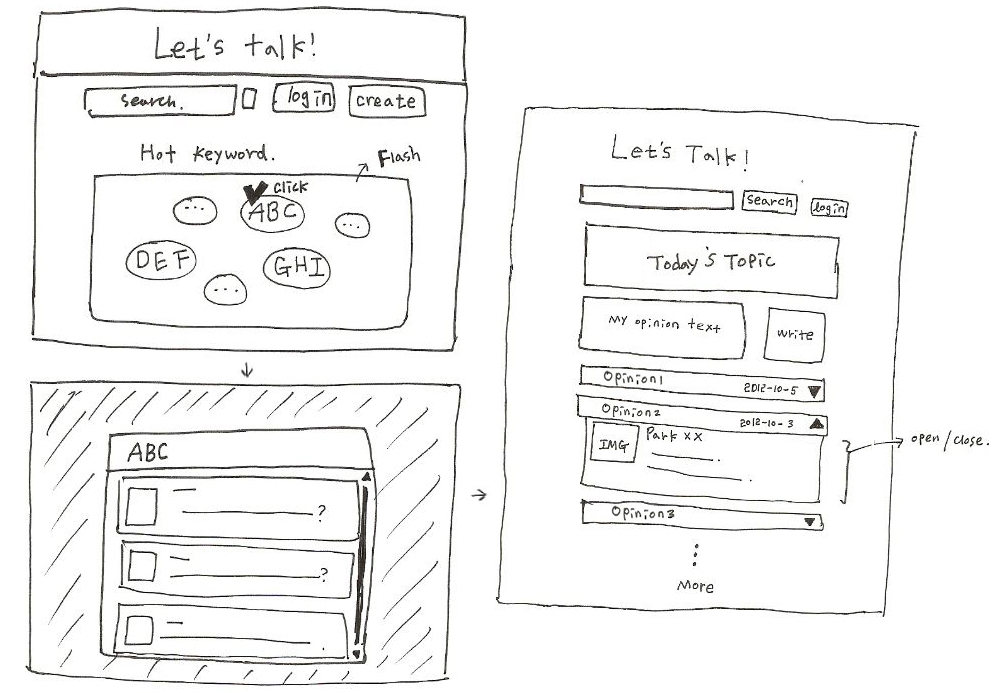 Let's talk!
search.
log in
create
Hot keyword.
Flash
click
...
ABC
...
DEF
GHI
...
ABC
?
?
Let's Talk!
search
login
Today's Topic
My opinion text
write
Opinion1
2012-10-5
Opinion2
2012-10-3
IMG
Park xx
open/close.
Opinion3
More